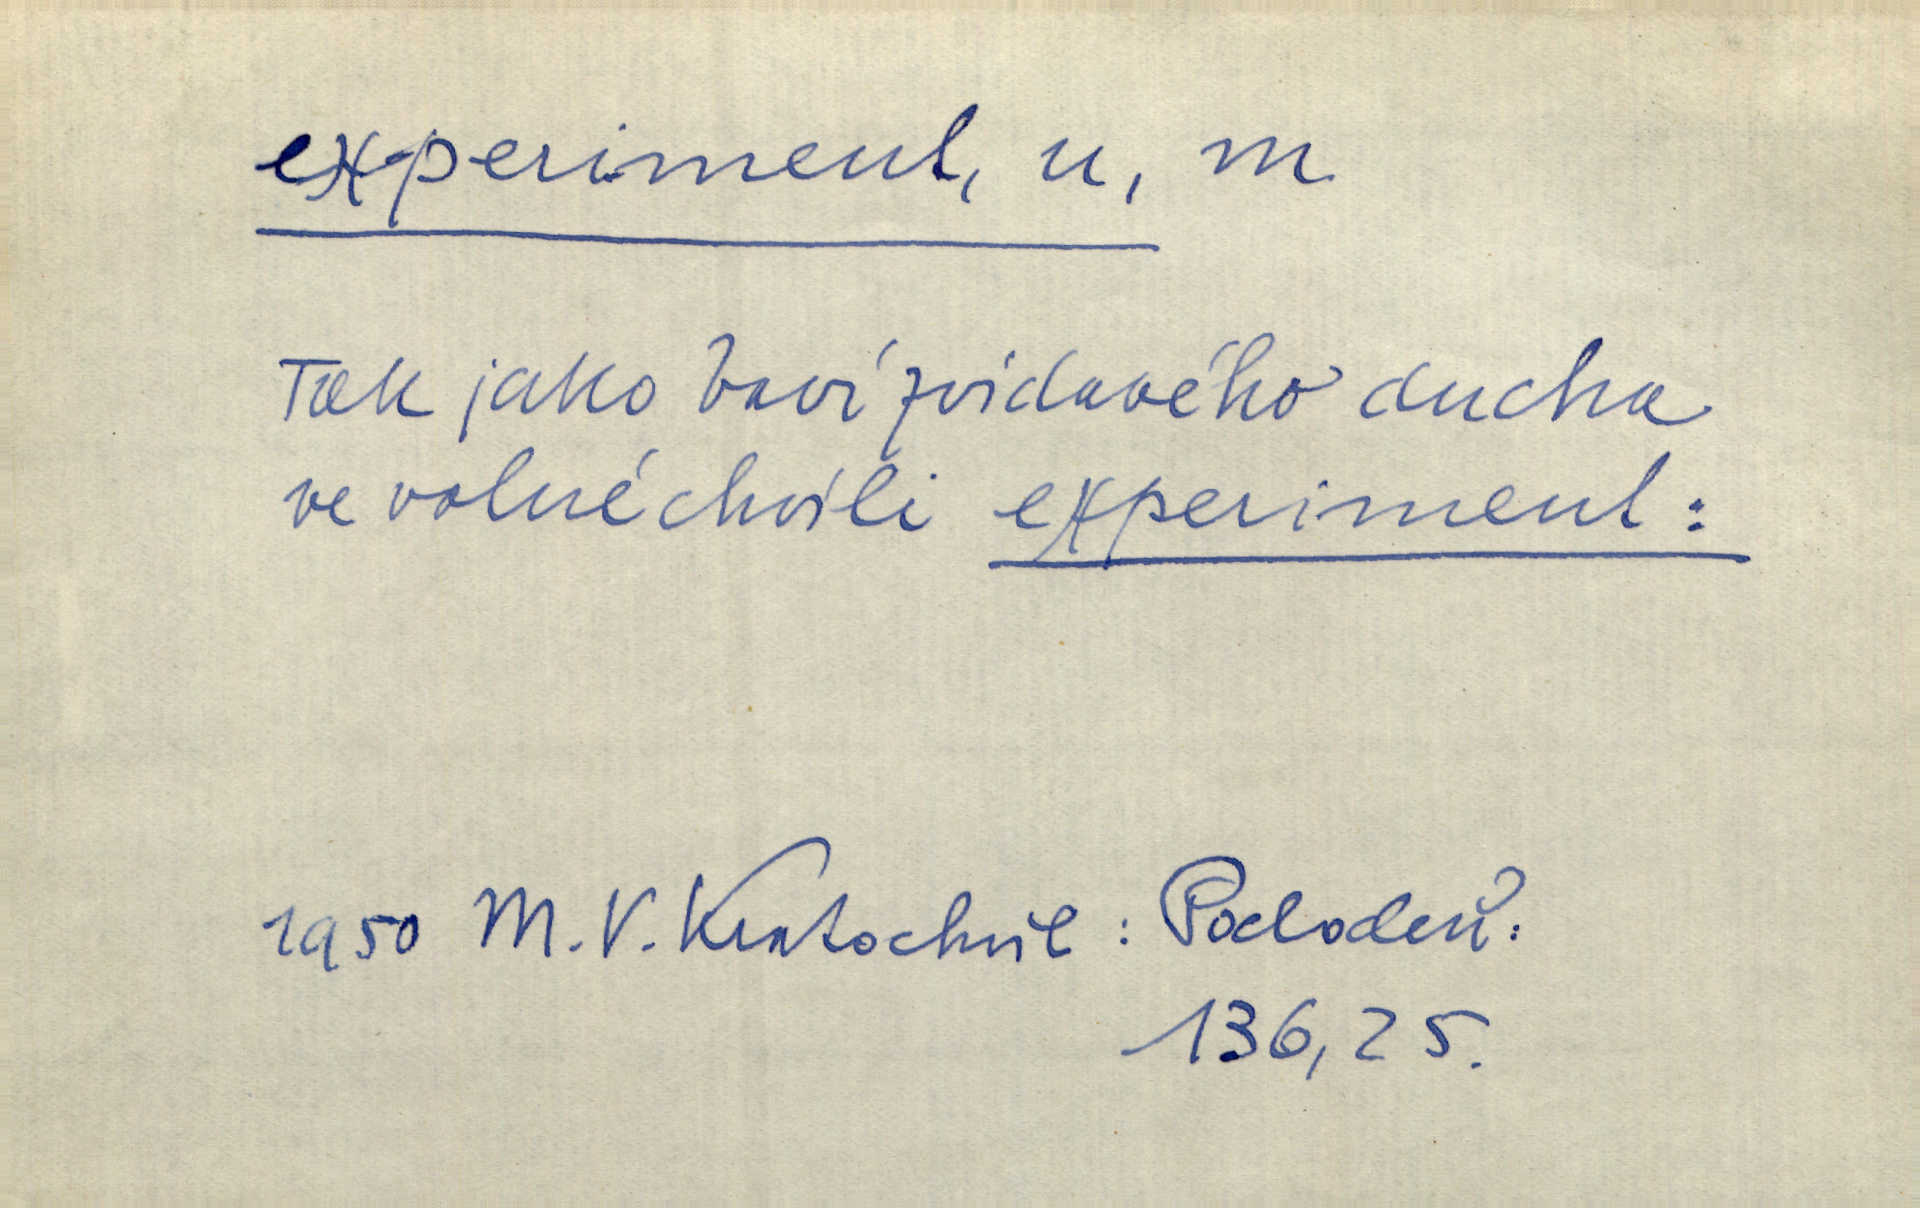 experiment, u, m.
Tak jako baví zvídavého ducha
ve volné chvíli experiment:
1950 M. V. Kratochvíl:
136,25.